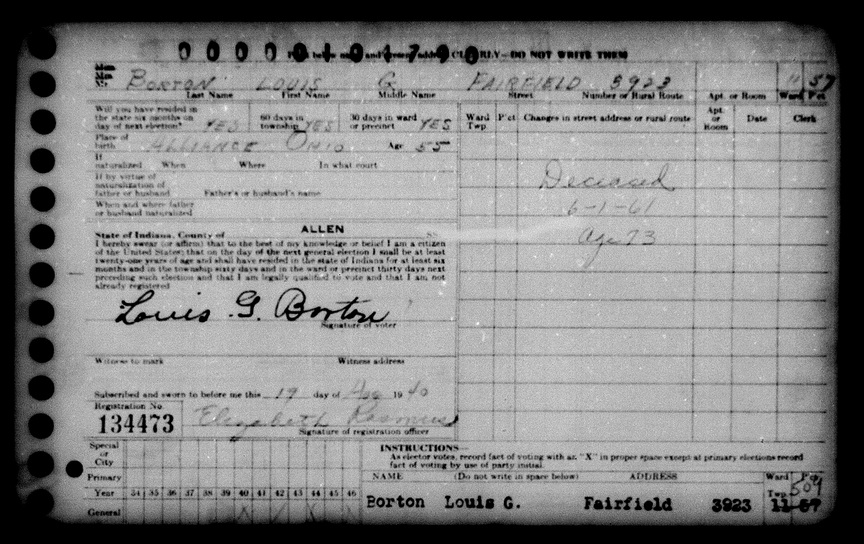 00000104790
Print below name and present address CLEARLY—DO NOT WRITE THEM
Mr. BORTON LOUIS G FAIRFIELD 3923 11 57
Last Name First Name Middle Name Street Number or Rural Route Apt. or Room Ward Pct
Will you have resided in the state six months on day of next election? YES 60 days in township YES 30 days in ward or precinct YES
Ward Twp. P'ct Changes in street address or rural route Apt. or Room Date Clerk
Place of birth ALLIANCE OHIO Age 55
If naturalized When Where In what court
If by virtue of naturalization of father or husband Father's or husband's name
Deceased
When and where father or husband naturalized
6-1-61
State of Indiana, County of ALLEN SS
Age 73
I hereby swear (or affirm) that to the best of my knowledge or belief I am a citizen
of the United States; that on the day of the next general election I shall be at least
twenty-one years of age and shall have resided in the state of Indiana for at least six
months and in the township sixty days and in the ward or precinct thirty days next
preceding such election and that I am legally qualified to vote and that I am not
already registered
Louis G. Borton
Signature of voter
Witness to mark Witness address
Subscribed and sworn to before me this 19 day of Aug 1940
Registration No.
134473 Elizabeth
Signature of registration officer
Special or City
INSTRUCTIONS—
As elector votes, record fact of voting with an "X" in proper space except at primary elections record
fact of voting by use of party initial.
Primary
NAME (Do not write in space below) ADDRESS Ward Twp. Pct
Year 34 35 36 37 38 39 40 41 42 43 44 45 46
509
General X X X
Borton Louis G. Fairfield 3923 11-57